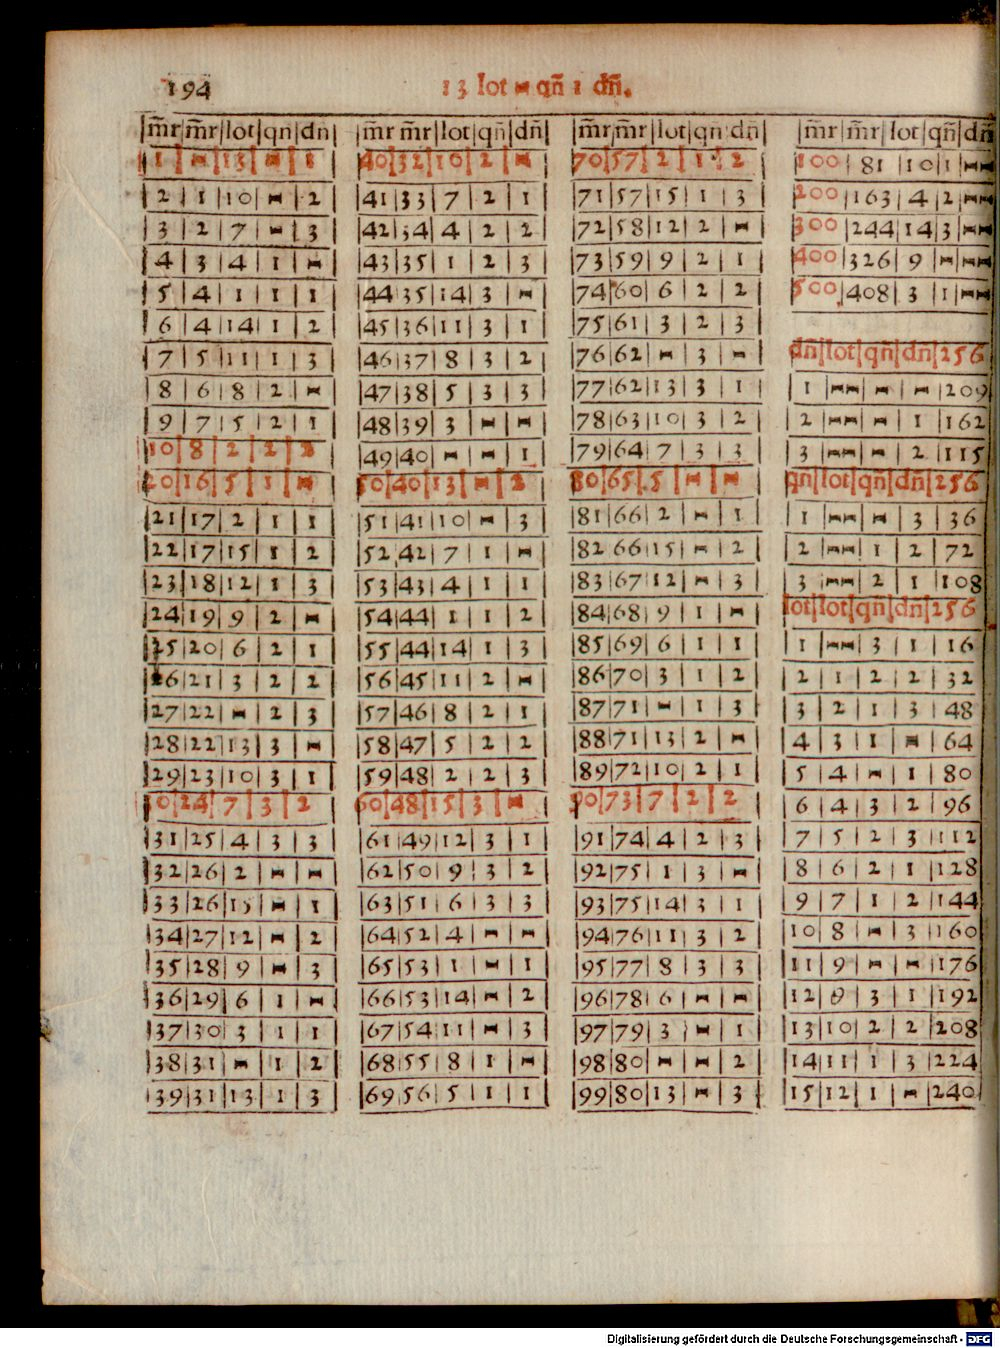 194
13 lot - qñ 1 dñ.
m̃r|m̃r|lot|qñ|dñ
1|-|13|-|1
2|1|10|-|2
3|2|7|-|3
4|3|4|1|-
5|4|1|1|1
6|4|14|1|2
7|5|11|1|3
8|6|8|2|-
9|7|5|2|1
10|8|2|2|2
20|16|5|1|-
21|17|2|1|1
22|17|15|1|2
23|18|12|1|3
24|19|9|2|-
25|20|6|2|1
26|21|3|2|2
27|22|-|2|3
28|22|13|3|-
29|23|10|3|1
30|24|7|3|2
31|25|4|3|3
32|26|2|-|-
33|26|15|-|1
34|27|12|-|2
35|28|9|-|3
36|29|6|1|-
37|30|3|1|1
38|31|-|1|2
39|31|13|1|3
m̃r m̃r|lot|qñ|dñ
40|32|10|2|-
41|33|7|2|1
42|34|4|2|2
43|35|1|2|3
44|35|14|3|-
45|36|11|3|1
46|37|8|3|2
47|38|5|3|3
48|39|3|-|-
49|40|-|-|1
50|40|13|-|2
51|41|10|-|3
52|42|7|1|-
53|43|4|1|1
54|44|1|1|2
55|44|14|1|3
56|45|11|2|-
57|46|8|2|1
58|47|5|2|2
59|48|2|2|3
60|48|15|3|-
61|49|12|3|1
62|50|9|3|2
63|51|6|3|3
64|52|4|-|-
65|53|1|-|1
66|53|14|-|2
67|54|11|-|3
68|55|8|1|-
69|56|5|1|1
m̃r|m̃r|lot|qñ|dñ
70|57|2|1|2
71|57|15|1|3
72|58|12|2|-
73|59|9|2|1
74|60|6|2|2
75|61|3|2|3
76|62|-|3|-
77|62|13|3|1
78|63|10|3|2
79|64|7|3|3
80|65|5|-|-
81|66|2|-|1
82|66|15|-|2
83|67|12|-|3
84|68|9|1|-
85|69|6|1|1
86|70|3|1|2
87|71|-|1|3
88|71|13|2|-
89|72|10|2|1
90|73|7|2|2
91|74|4|2|3
92|75|1|3|-
93|75|14|3|1
94|76|11|3|2
95|77|8|3|3
96|78|6|-|-
97|79|3|-|1
98|80|-|-|2
99|80|13|-|3
m̃r|m̃r|lot|qñ|dñ
100|81|10|1|--
200|163|4|2|--
300|244|14|3|--
400|326|9|-|--
500|408|3|1|--
dñ|lot|qñ|dñ|256
1|--|-|-|209
2|--|-|1|162
3|--|-|2|115
qñ|lot|qñ|dñ|256
1|--|-|3|36
2|--|1|2|72
3|--|2|1|108
lot|lot|qñ|dñ|256
1|--|3|1|16
2|1|2|2|32
3|2|1|3|48
4|3|1|-|64
5|4|-|1|80
6|4|3|2|96
7|5|2|3|112
8|6|2|1|128
9|7|1|2|144
10|8|-|3|160
11|9|-|-|176
12|9|3|1|192
13|10|2|2|208
14|11|1|3|224
15|12|1|-|240
Digitalisierung gefördert durch die Deutsche Forschungsgemeinschaft - DFG